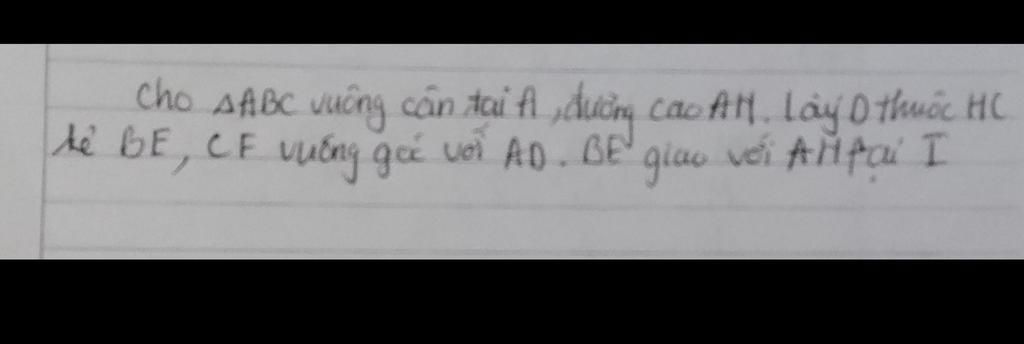 Cho △ABC vuông cân tại A, đường cao AH. Lấy D thuộc HC
kẻ BE, CF vuông góc với AD. BE giao với AH tại I